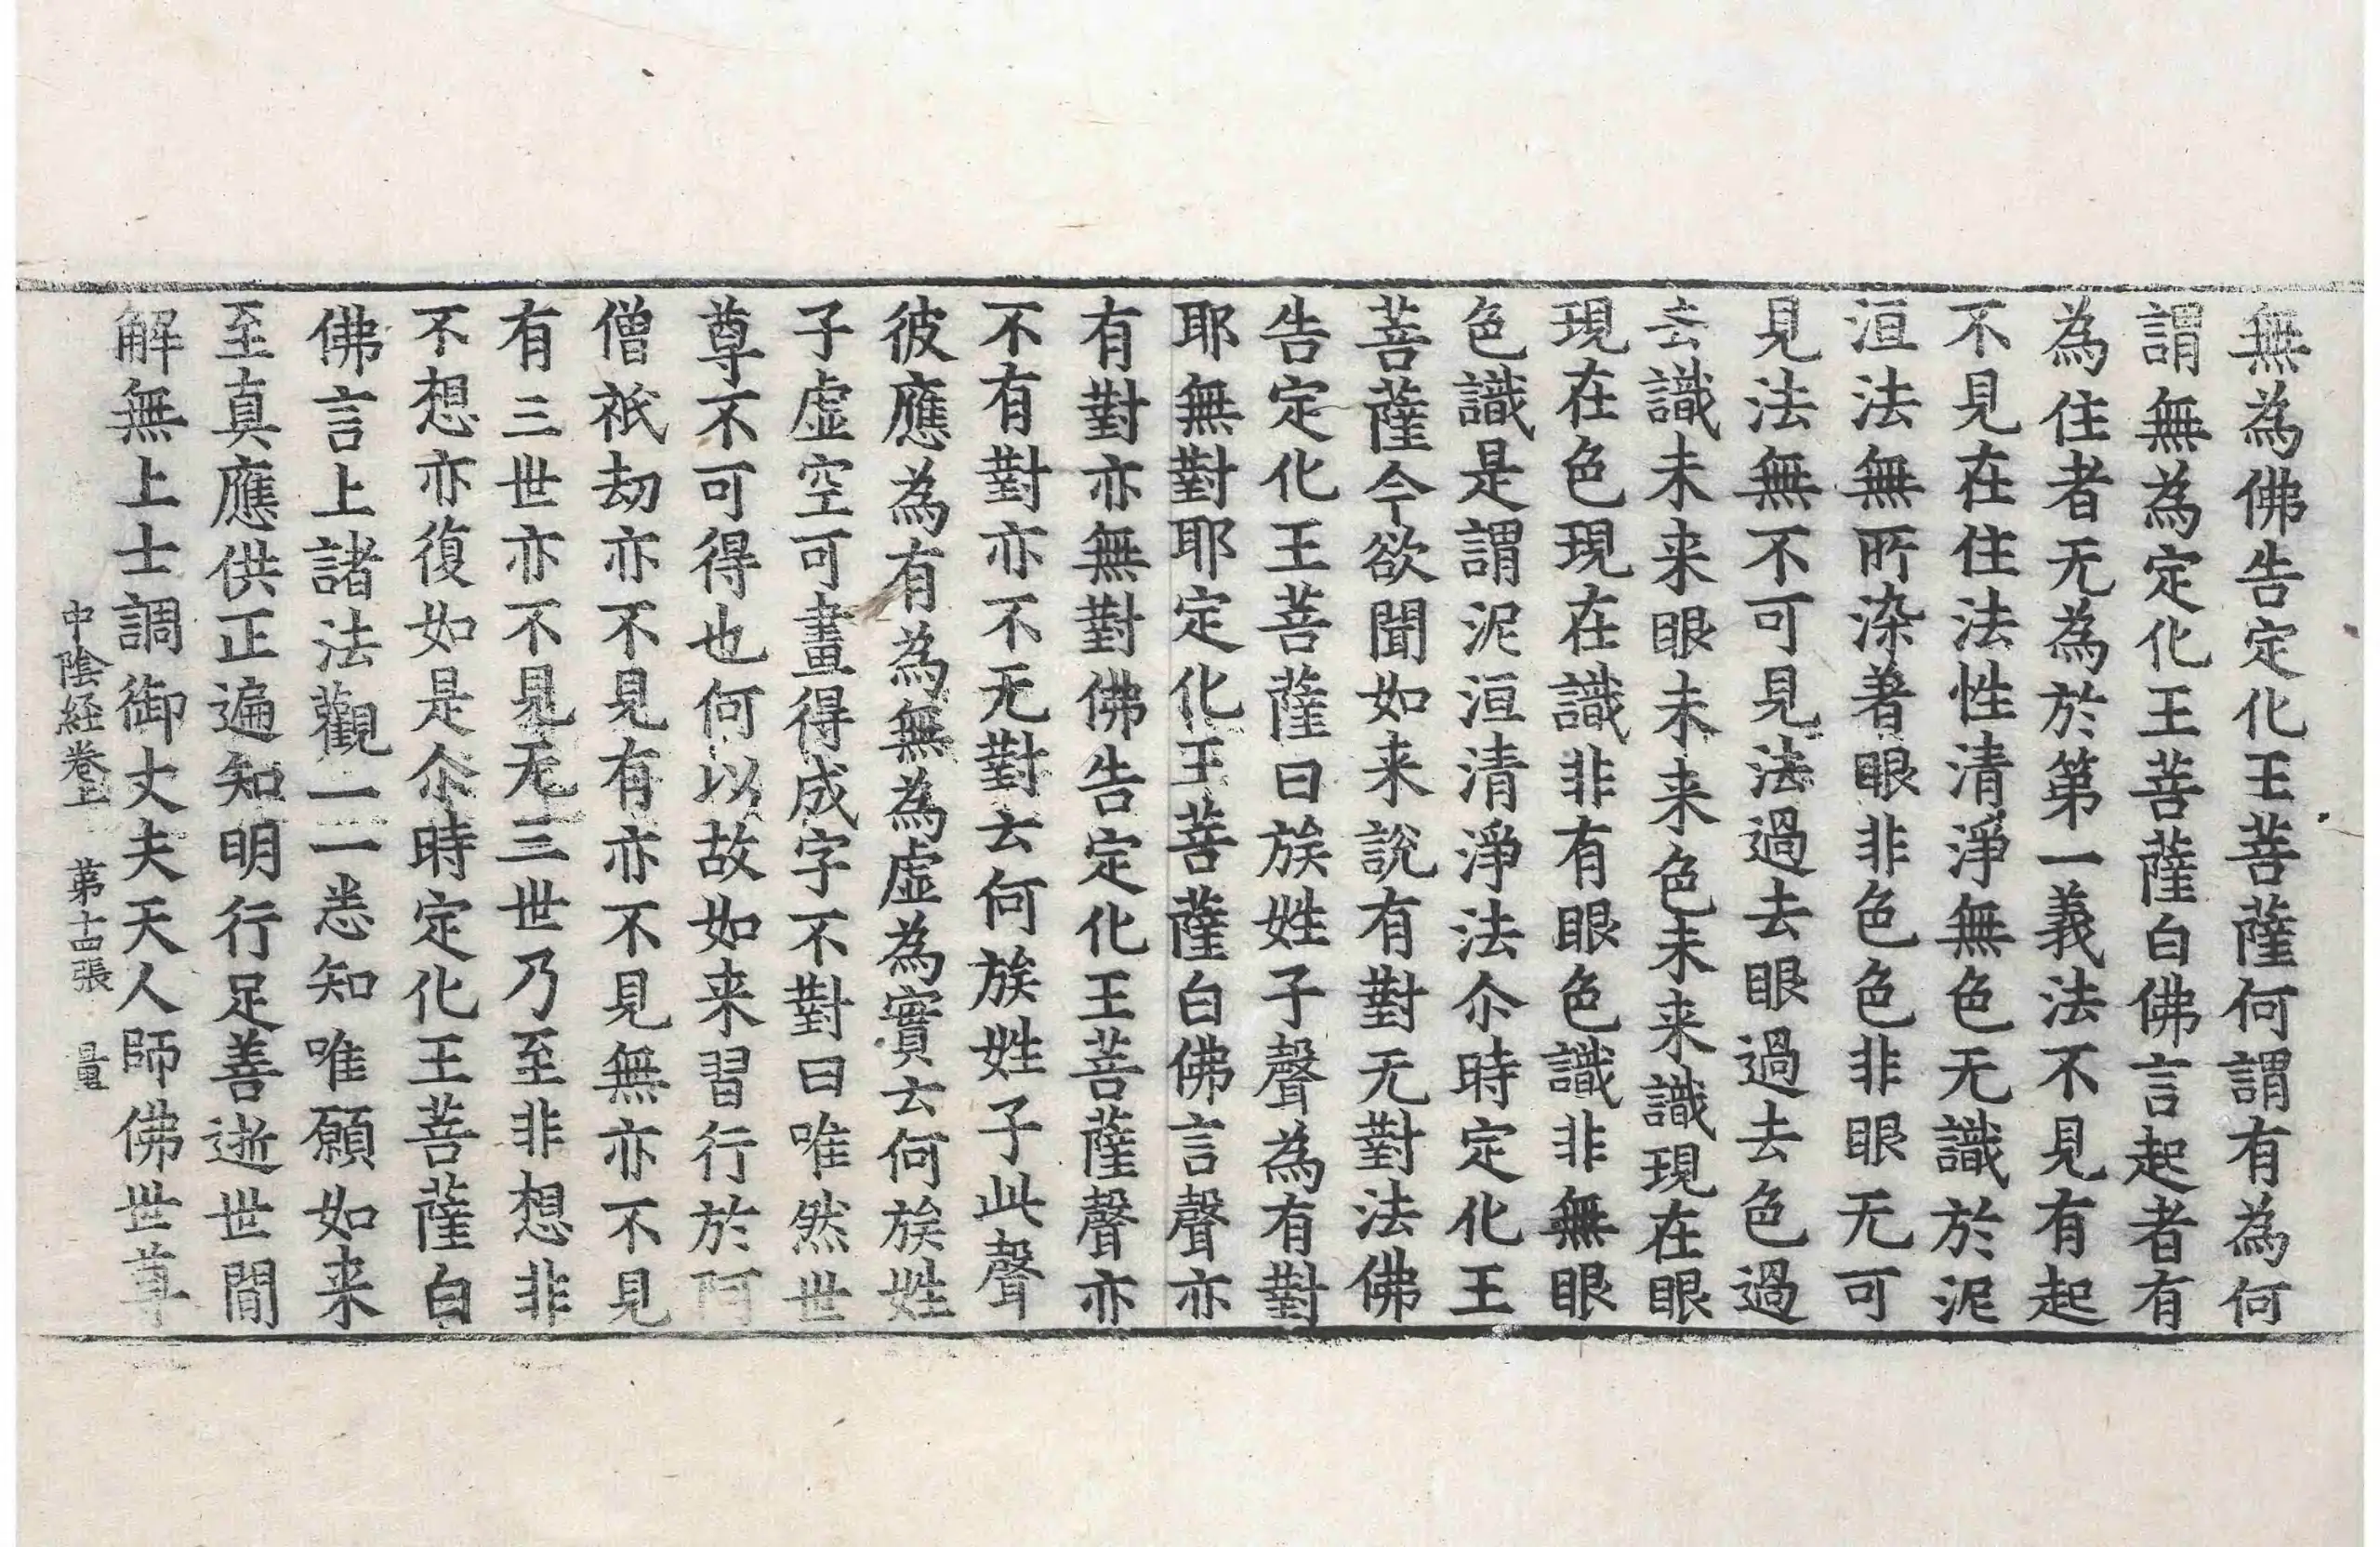 無為佛告定化王菩薩何謂有為何
謂無為定化王菩薩白佛言起者有
為住者无為於第一義法不見有起
不見在住法性清淨無色无識於泥
洹法無所染著眼非色色非眼无可
見法無不可見法過去眼過去色過
去識未来眼未来色未来識現在眼
現在色現在識非有眼色識非無眼
色識是謂泥洹清淨法尒時定化王
菩薩今欲聞如来說有對无對法佛
告定化王菩薩曰族姓子聲為有對
耶無對耶定化王菩薩白佛言聲亦
有對亦無對佛告定化王菩薩聲亦
不有對亦不无對云何族姓子此聲
彼應為有為無為虛為實云何族姓
子虛空可畫得成字不對曰唯然世
尊不可得也何以故如来習行於阿
僧祇劫亦不見有亦不見無亦不見
有三世亦不見无三世乃至非想非
不想亦復如是尒時定化王菩薩白
佛言上諸法觀一一悉知唯願如来
至真應供正遍知明行足善逝世間
解無上士調御丈夫天人師佛世尊
中陰経卷上　第十四張　量